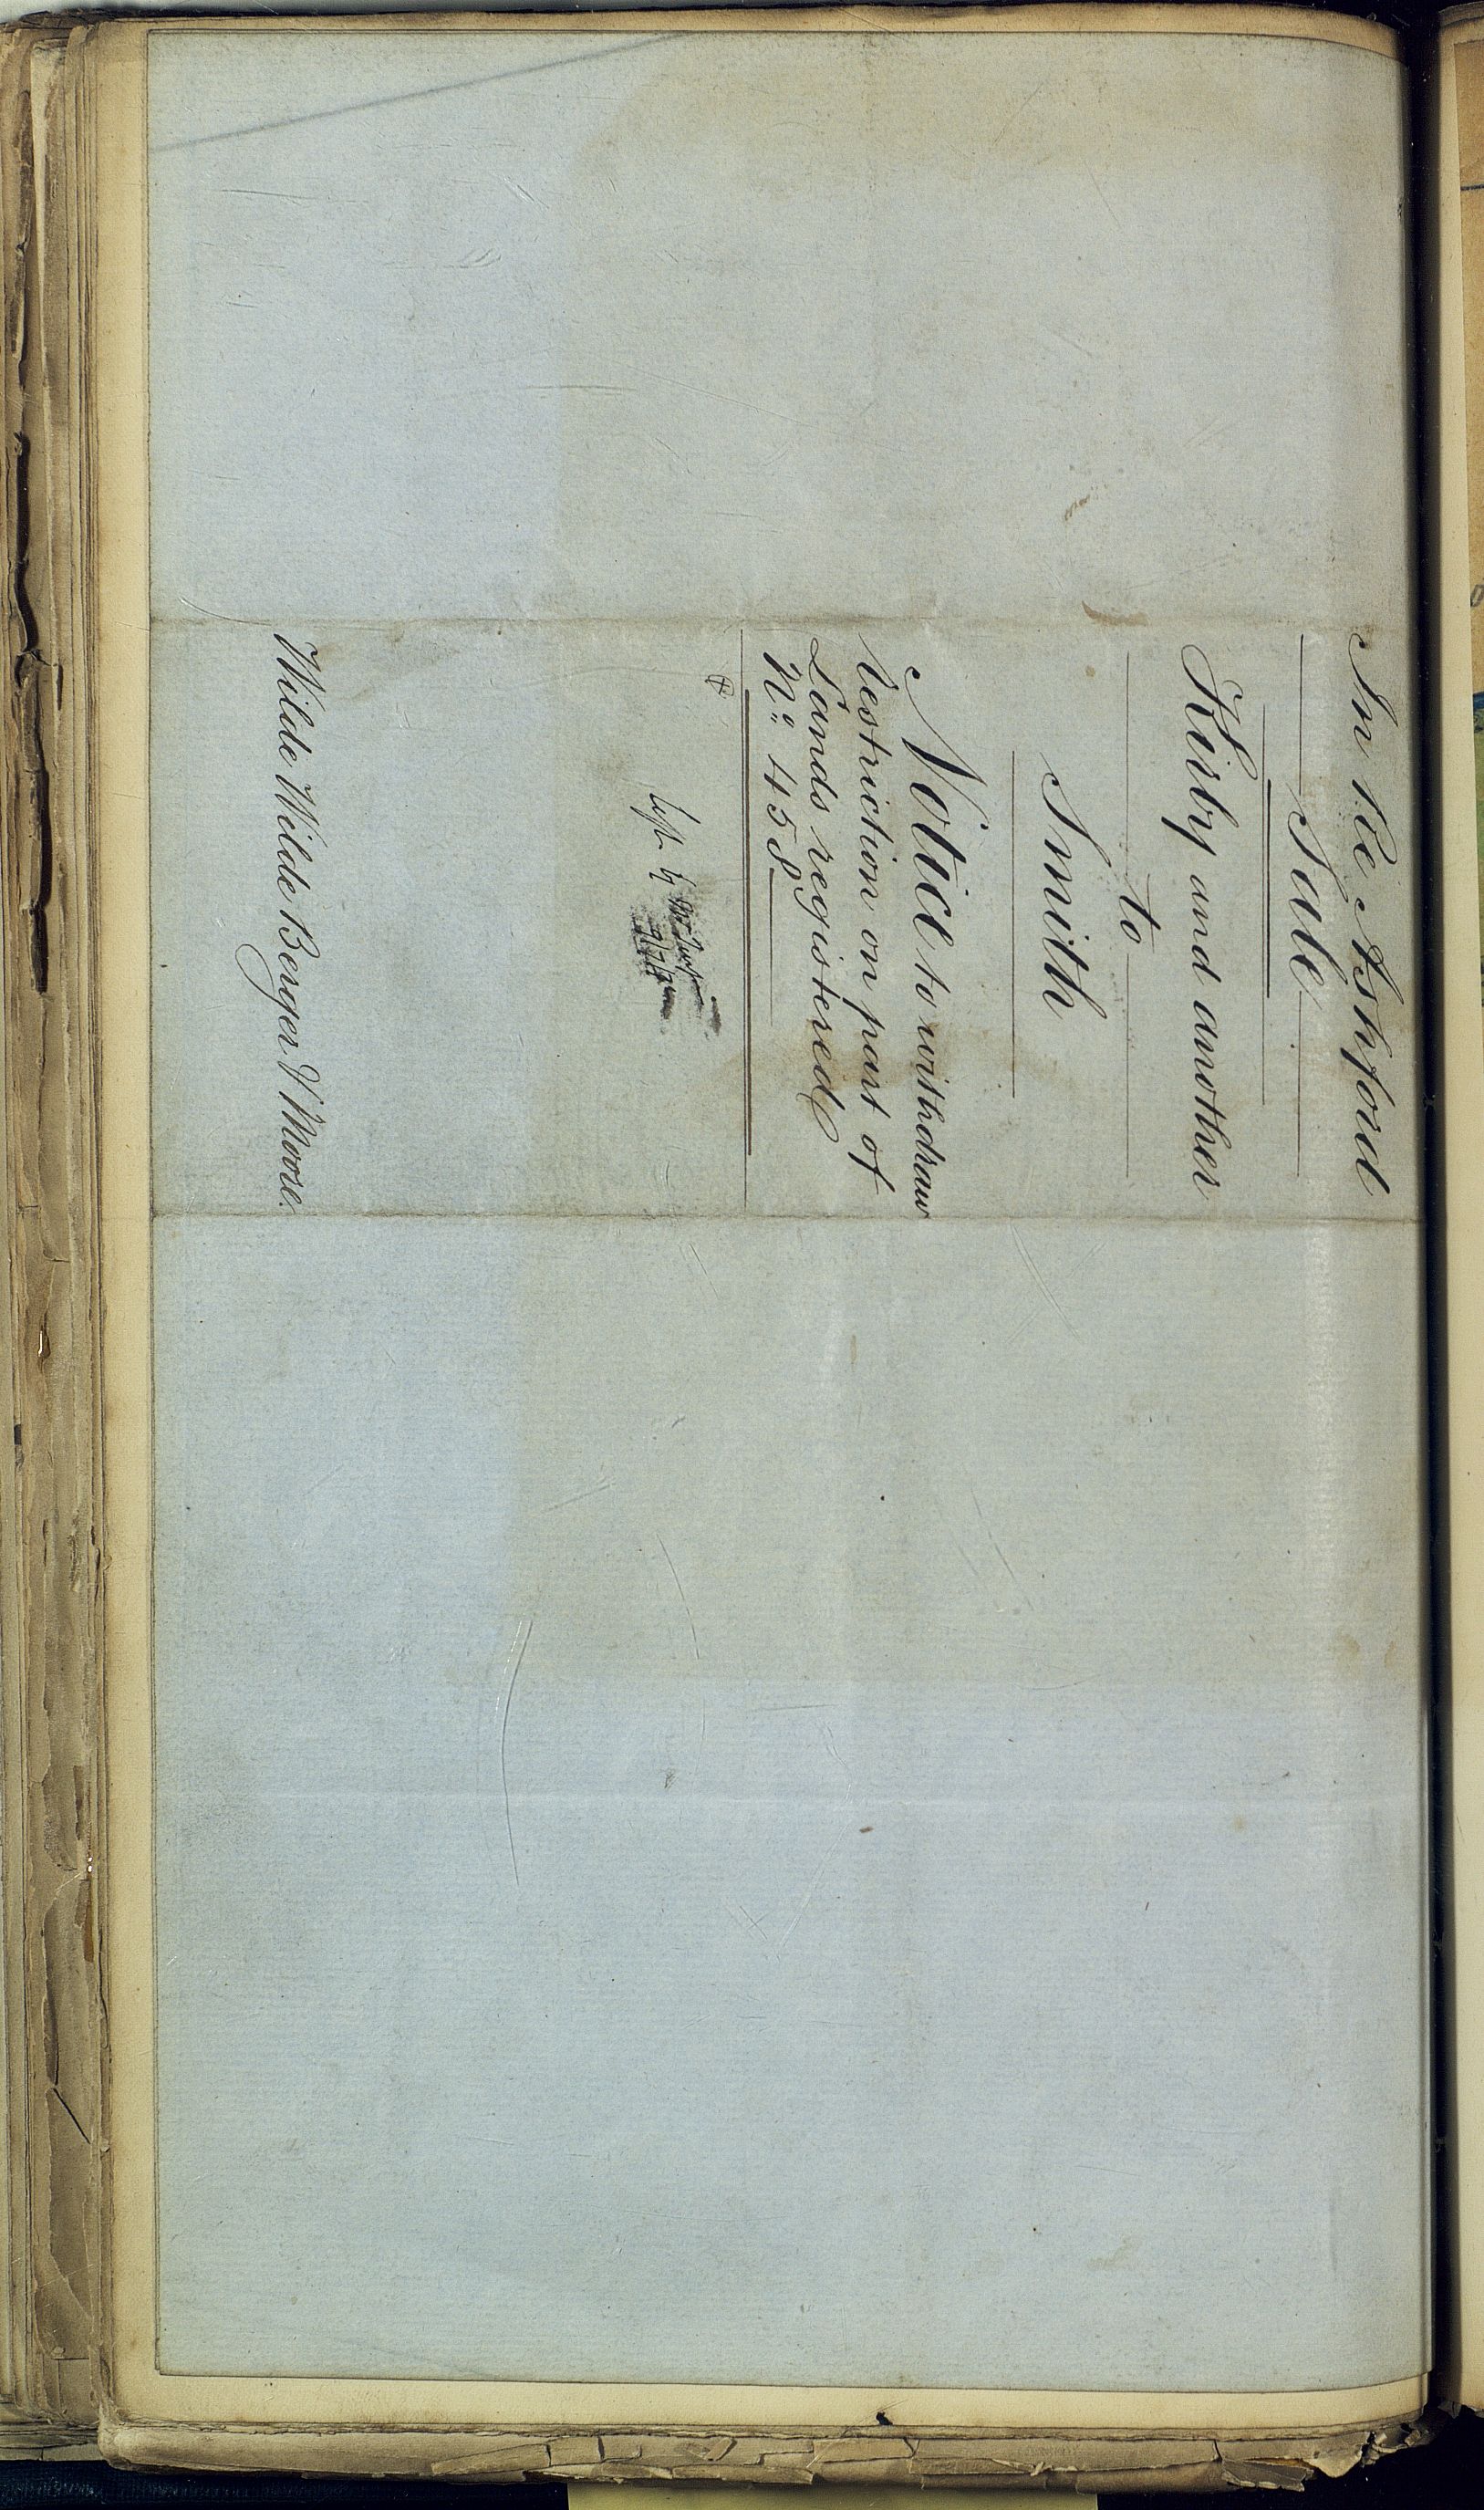 In Re Ashford
Sale
Kirby and another
to
Smith
Notice to withdraw
restriction on part of
Lands registered
No. 458
left by
Wilde Wilde Berger & Moore.